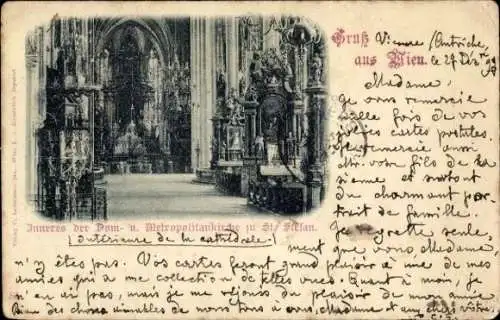 Gruß
aus Wien.
Vienne (Autriche,
le 27 Xbre 98
Madame,
Je vous remercie
mille fois de vos
cartes postales
Remerciez aussi
votre fils de la
sienne et surtout
du charmant por-
trait de famille.
Je regrette seule-
ment que vous, Madame,
Inneres der Dom- u. Metropolitankirche zu St. Stefan.
(Intérieure de la cathédrale)
n'y êtes pas. Vos cartes feront grand plaisir à une de mes
amies qui a une collection de telles vues. Quant à moi, je
n'en ai pas, mais je me réjouis du plaisir de mon amie
Bien des choses aimables de nous tous à vous, Madame et